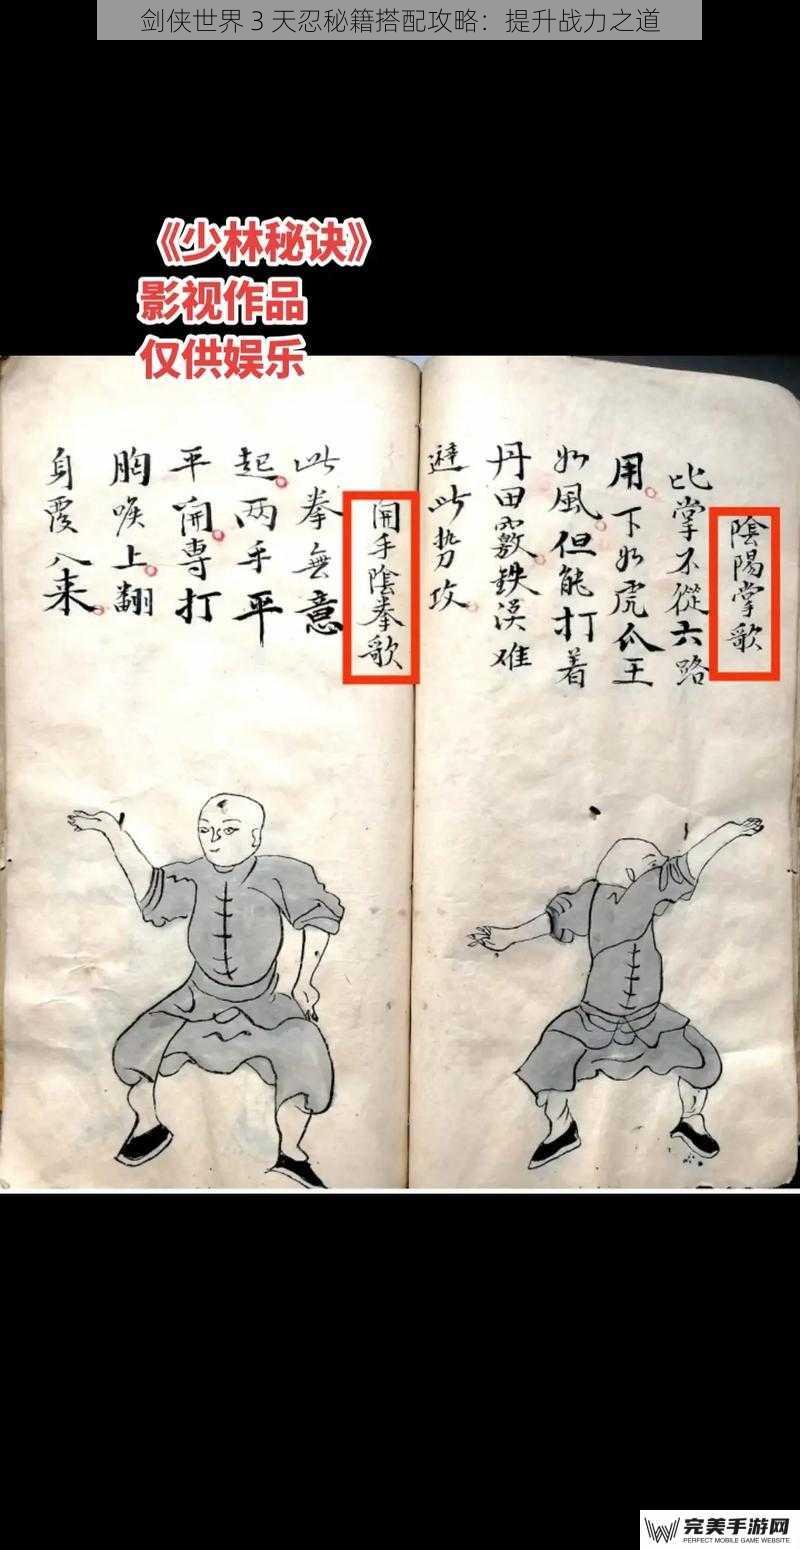 剑侠世界 3 天忍秘籍搭配攻略：提升战力之道
《少林秘诀》
影视作品
仅供娱乐
陰陽掌歌
比掌不從六路
用下如虎爪王
如風但能打着
丹田竅鉄漢难
避此势攻
開手陰拳歌
此拳無意
起两手平
平開專打
胸喉上翻
身覆八来
完美手游网
PERFECT MOBILE GAME WEBSITE